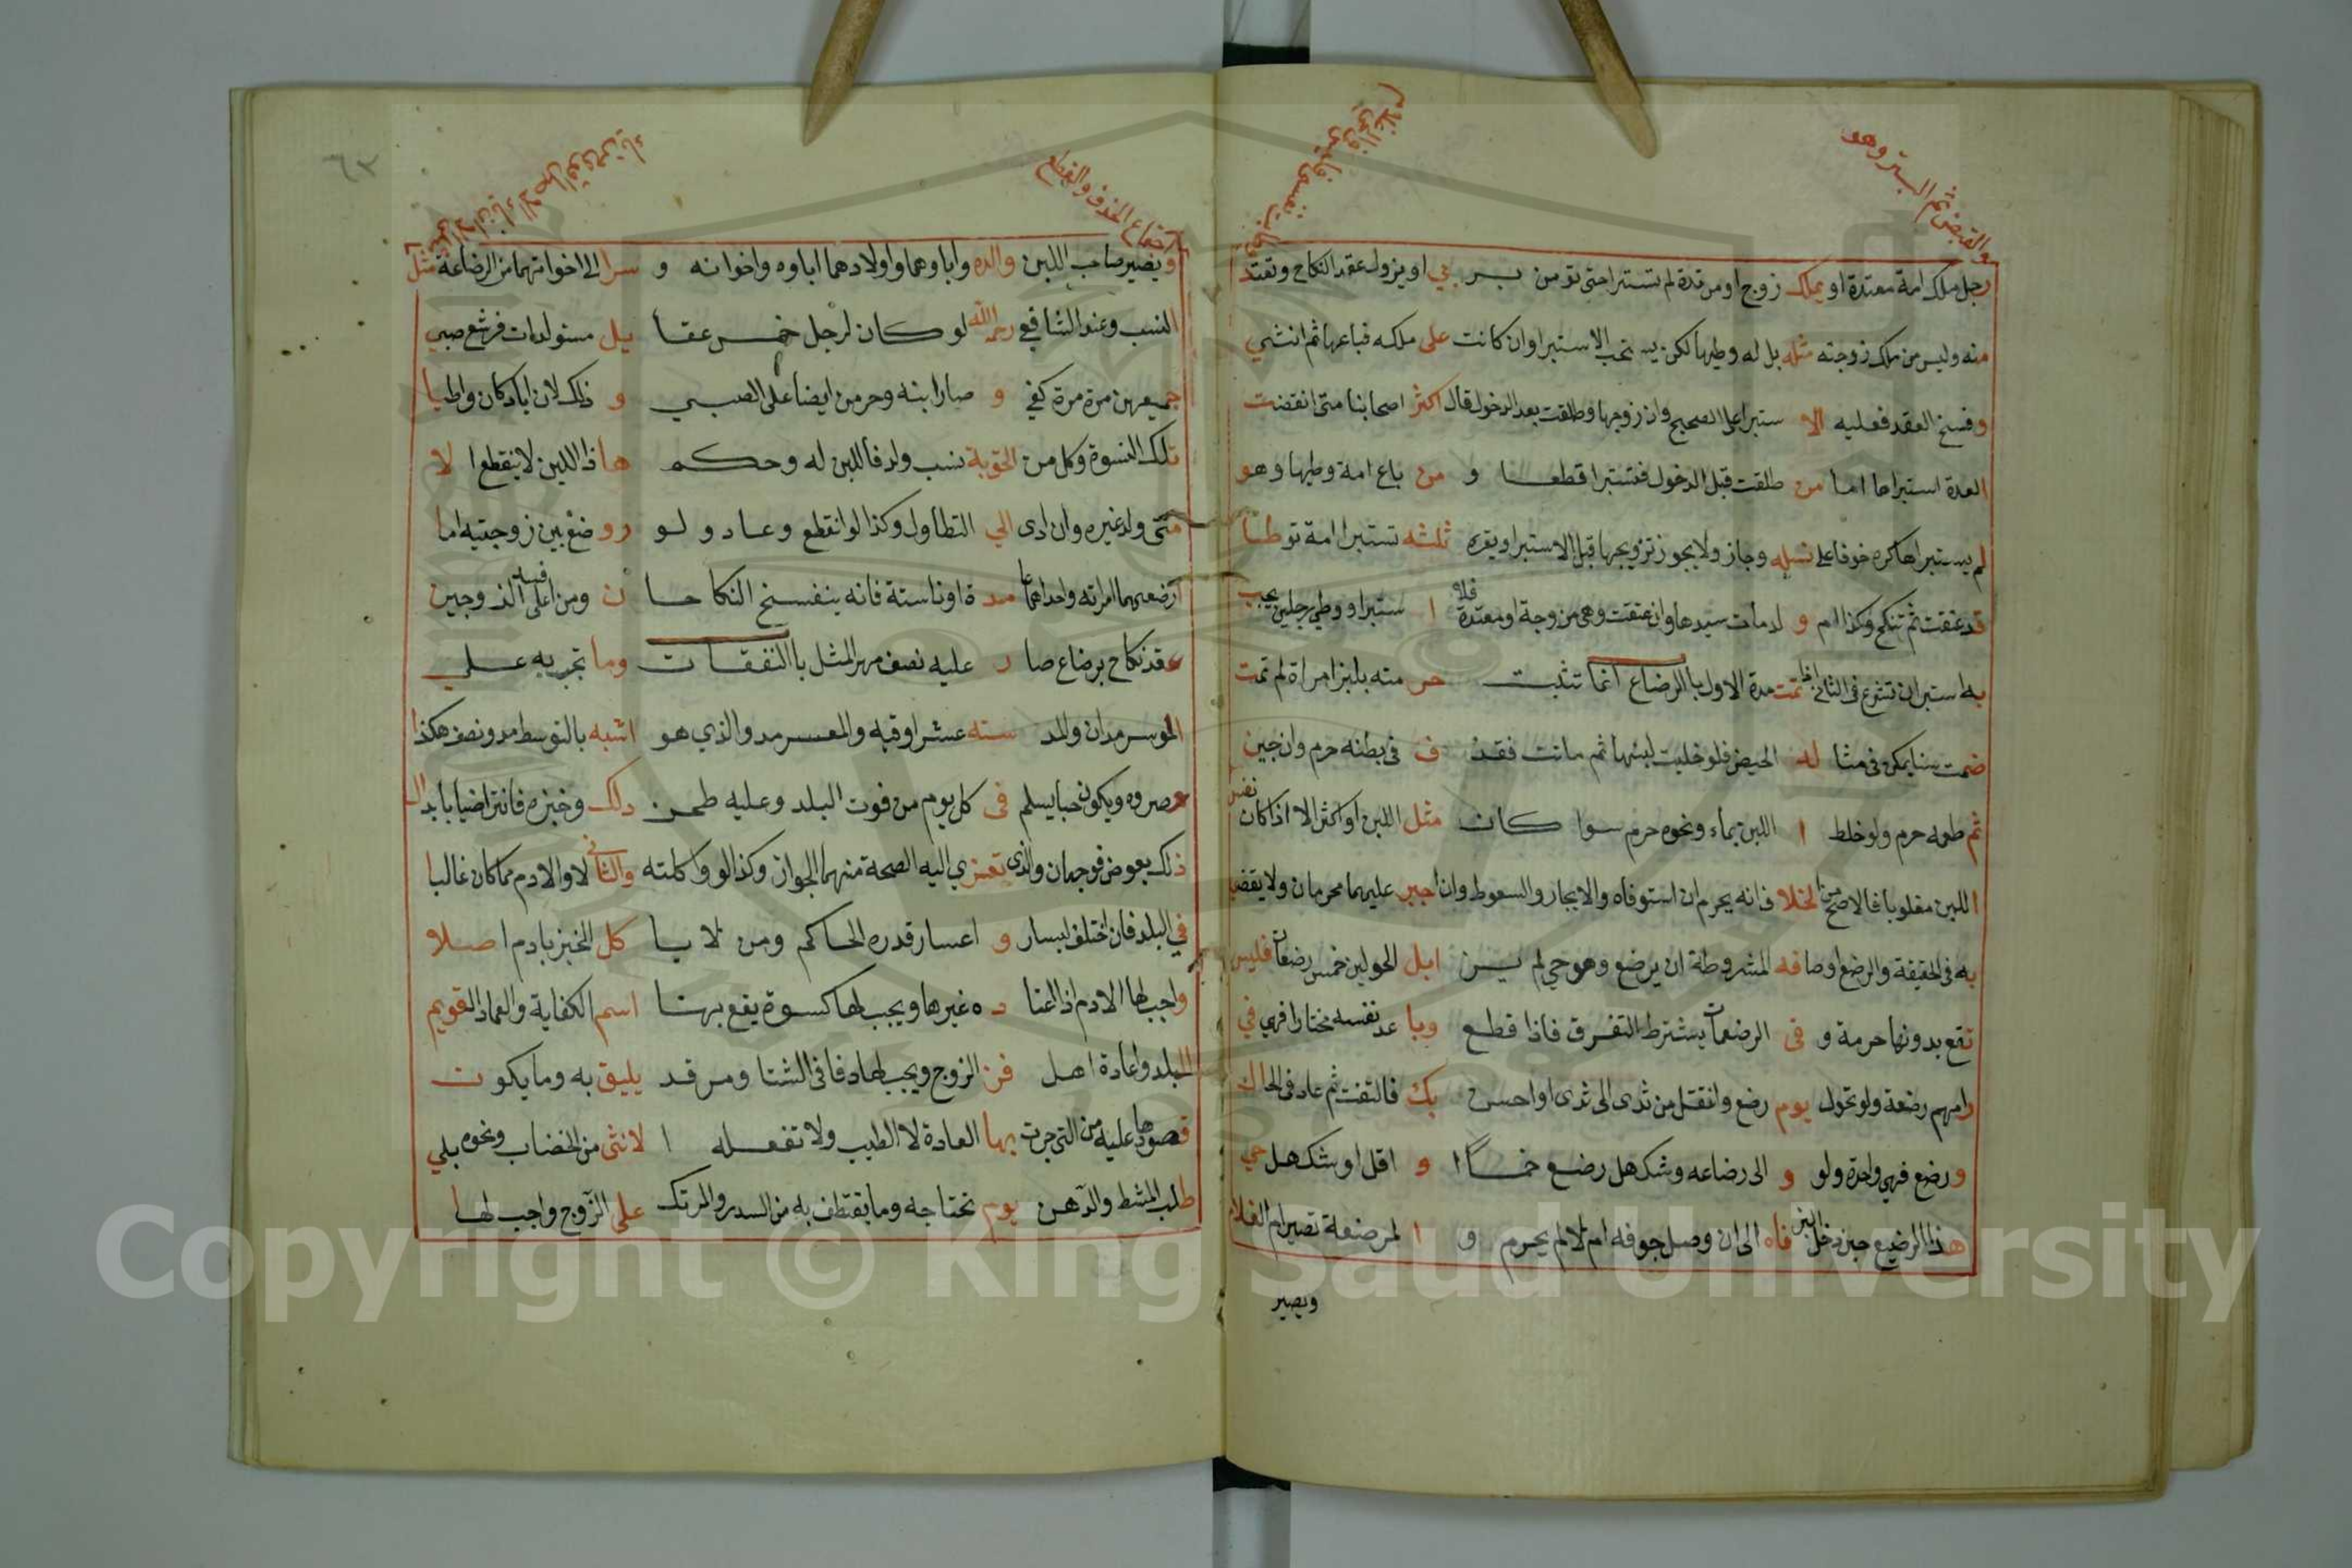 رجل ملك امة معتدة او يملك زوج او مرتدة لم تستبرا حتى تؤمن او يزول عقد النكاح وتعتد
منه وليس من ملك زوجته مثله بل له وطيها لكن يستحب الاستبرا وان كانت على ملكه فباعها ثم انثنى
وفسخ العقد فعليه الا ستبرا على الصحيح وان زوجها وطلقت بعد الدخول قال اكثر اصحابنا متى انقضت
العدة استبراها اما من طلقت قبل الدخول فتستبرا قطعا و من باع امة وطيها وهو
لم يستبراها كره خوفا على نسله وجاز ولا يجوز تزويجها قبل الاستبرا ويقره ثلثه تستبرا امة توطا
قد عتقت ثم تنكح وكذا ام و لد مات سيدها وان عتقت وهي مزوجة او معتدة فلا ا ستبرا و وطي رجلين يجب
به استبران تشرع في الثاني اذا تمت مدة الاول باالرضاع انما تثبت حر مته بلبن امراة لم تمت
ضمت سنا يمكن في مثا له الحيض فلو خليت لبنها ثم ماتت فقد ف في بطنه حرم وان جبن
ثم طعمه حرم ولو خلط ا اللبن بماء ونحوه حرم سوا كان مثل اللبن او اكثر الا اذا كان
اللبن مغلوبا فالاصح من الخلا فانه يحرم ان استوفاه والايجار والسعوط وان اجبر عليهما محرمان ولا يقضى
به في الحقيقة والرضع اوصافه المشروطة ان يرضع وهو حي لم ابل الحولين خمس رضعات فليس
تقع بدونها حرمة و فى الرضعات يشترط التفرق فاذا قطع وبا عد نفسه مختارا فهي في
رامهم رضعة ولو تحول يوم رضع وانتقل من ثدى الى ثدى او احس بك فالتفت ثم عاد في الحال
ورضع فهي واحدة ولو و الى رضاعه وشك هل رضع خمسا و اقل او شك هل حي
هذا الرضيع حين دخل اللبن فاه الى ان وصل جوفه ام لا لم يحرم و ا لمرضعة تصير ام الغلام
ويصير
ارتفاع الحذف والقطع
٦٣
ويصير صاحب اللبن والده واباوهما واولادهما اباوه واخوانه و سرا الى اخواتهما من الرضاعة مثل
النسب وعند الشافعي رحمه الله لو كان لرجل خمس عقا يل مستولدات فرضع صبي
جميعهن مرة مرة كفى و صار ابنه وحرمن ايضا على الصبي و ذلك لان اباه كان واطيا
تلك النسوة وكل من الحق به نسب ولد فاللبن له وحكم هاذا اللبن لا ينقطع ا لا
متى ولد غيره وان ادى الي التطاول وكذا لو انقطع وعاد ولو رو ضع بين زوجتيه اما
ارضعتهما امراته واحداهما مدة او ناسته فانه ينفسخ النكاحا ن ومن اعلى الزوجين
عقد نكاح برضاع صا ر عليه نصف مهر المثل باالنفقات وما تجري به على
الموسر مدان والمد سته عشر اوقيه والمعسر مد والذي هو اشبه بالتوسط مد ونصف هكذا
وصروه ويكون حبا يسلم فى كل يوم من قوت البلد وعليه طحن ذلك وخبزه فان تراضيا بابدال
ذلك بعوض فوجهان والذي تعتزي اليه الصحة منهما الجواز وكذا لو واكلته والثانى لا والادم مما كان غالبا
في البلد فان اختلف ليسار و اعسار قدره الحاكم ومن لا يا كل الخبز بادم اصلا
واجب لها الادم اذ اعتا د ه غيرها ويجب لها كسوة يقع بها اسم الكفاية والعماد القويم
البلد وعادة اهل فرن الزوج ويجب لها دفا فى الشتا ومرقد يليق به وما يكون
قصودها عليه من التى جرت بها العادة لا الطيب ولا تفعله ا لانثى من الخضاب ونحوه بلي
طلب المشط والدهن يوم تحتاجه وما تقتطف به من السدر والمرتك على الزوج واجب لها
Copyright © King Saud University